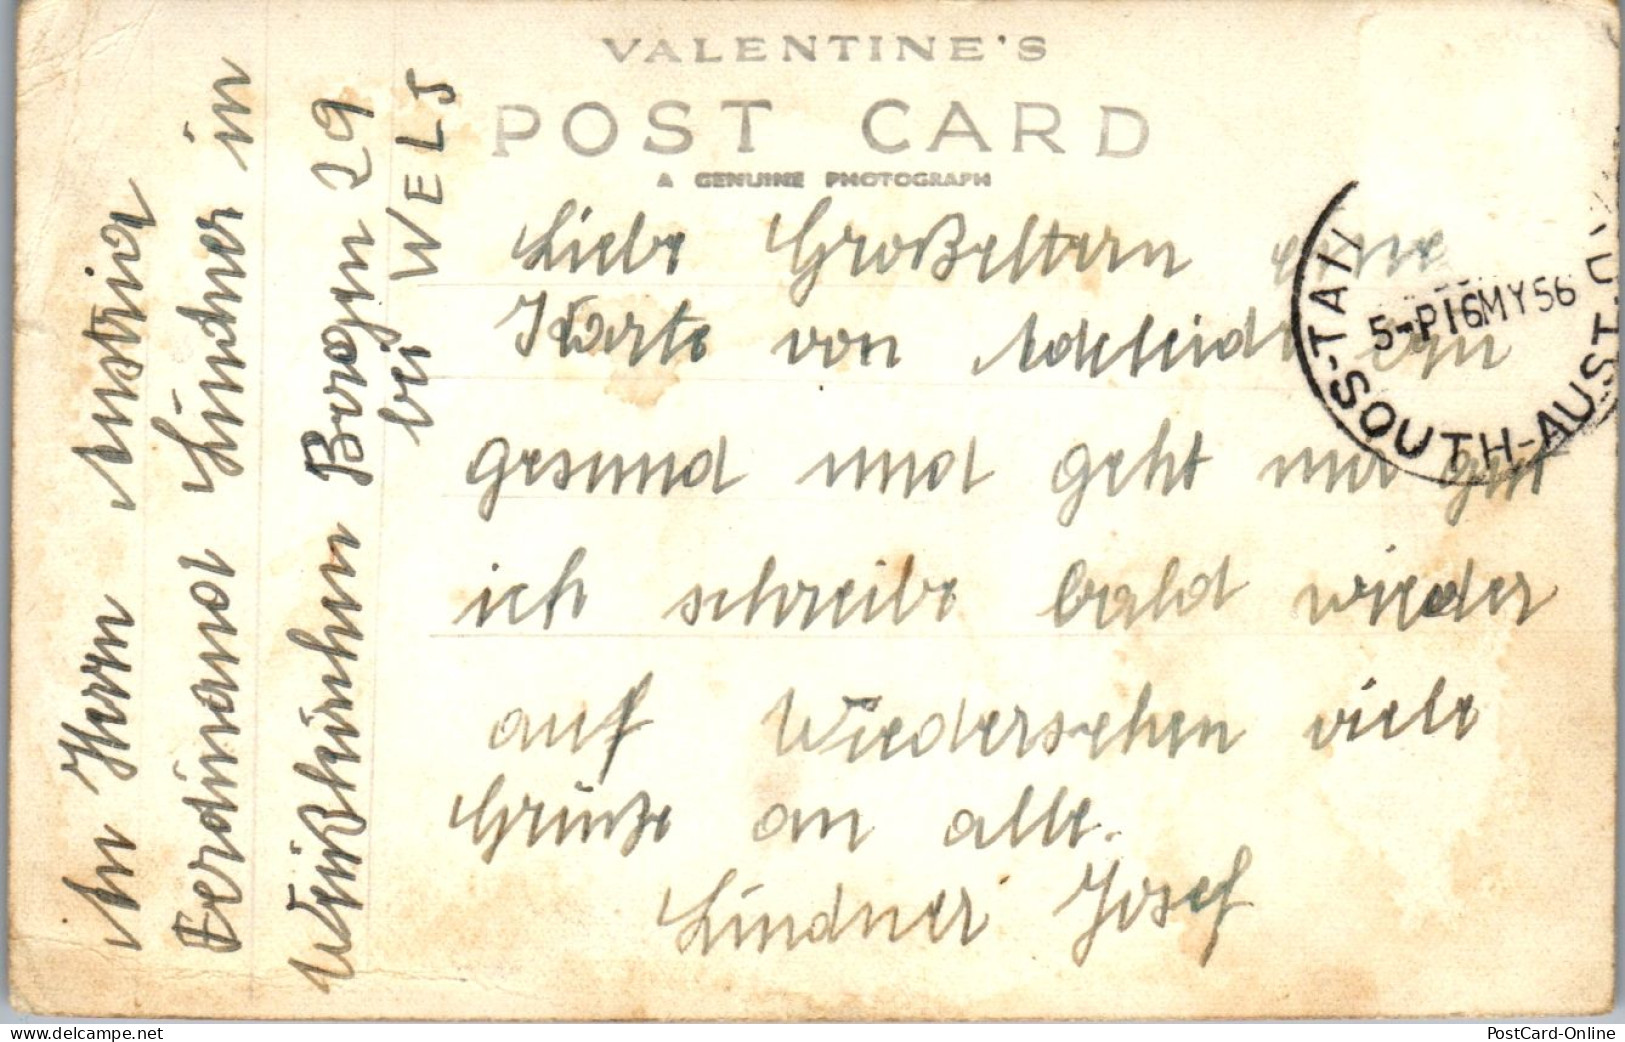 VALENTINE'S
POST CARD
A GENUINE PHOTOGRAPH
Liebe Großeltern eine
Karte von Adeleide bin
gesund und geht mir gut
ich schreibe bald wieder
auf Wiedersehen viele
Grüße an alle.
Lindner Josef
An Herrn Austria
Ferdinand Lindner in
Weißkirchen Bergen 29
bei WELS
5-P16MY56
SOUTH-AUST
PostCard-Online
delcampe.net